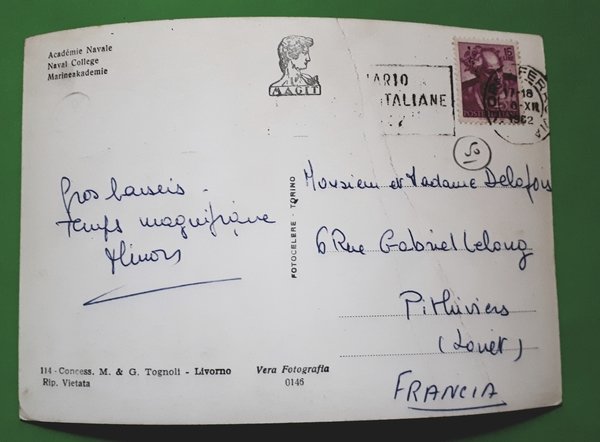 Académie Navale
Naval College
Marineakademie
MAGIT
ARIO
ITALIANE
15
POSTE ITALIANE
FERROVIA
17-18
XII
1962
50
Gros baiseis -
Temps magnifique
Monsieur et Madame Delafoix
6 Rue Gabriel Lelong
Pithiviers
(Loiret)
FRANCIA
FOTOCELERE - TORINO
114 - Concess. M. & G. Tognoli - Livorno
Rip. Vietata
Vera Fotografia
0146